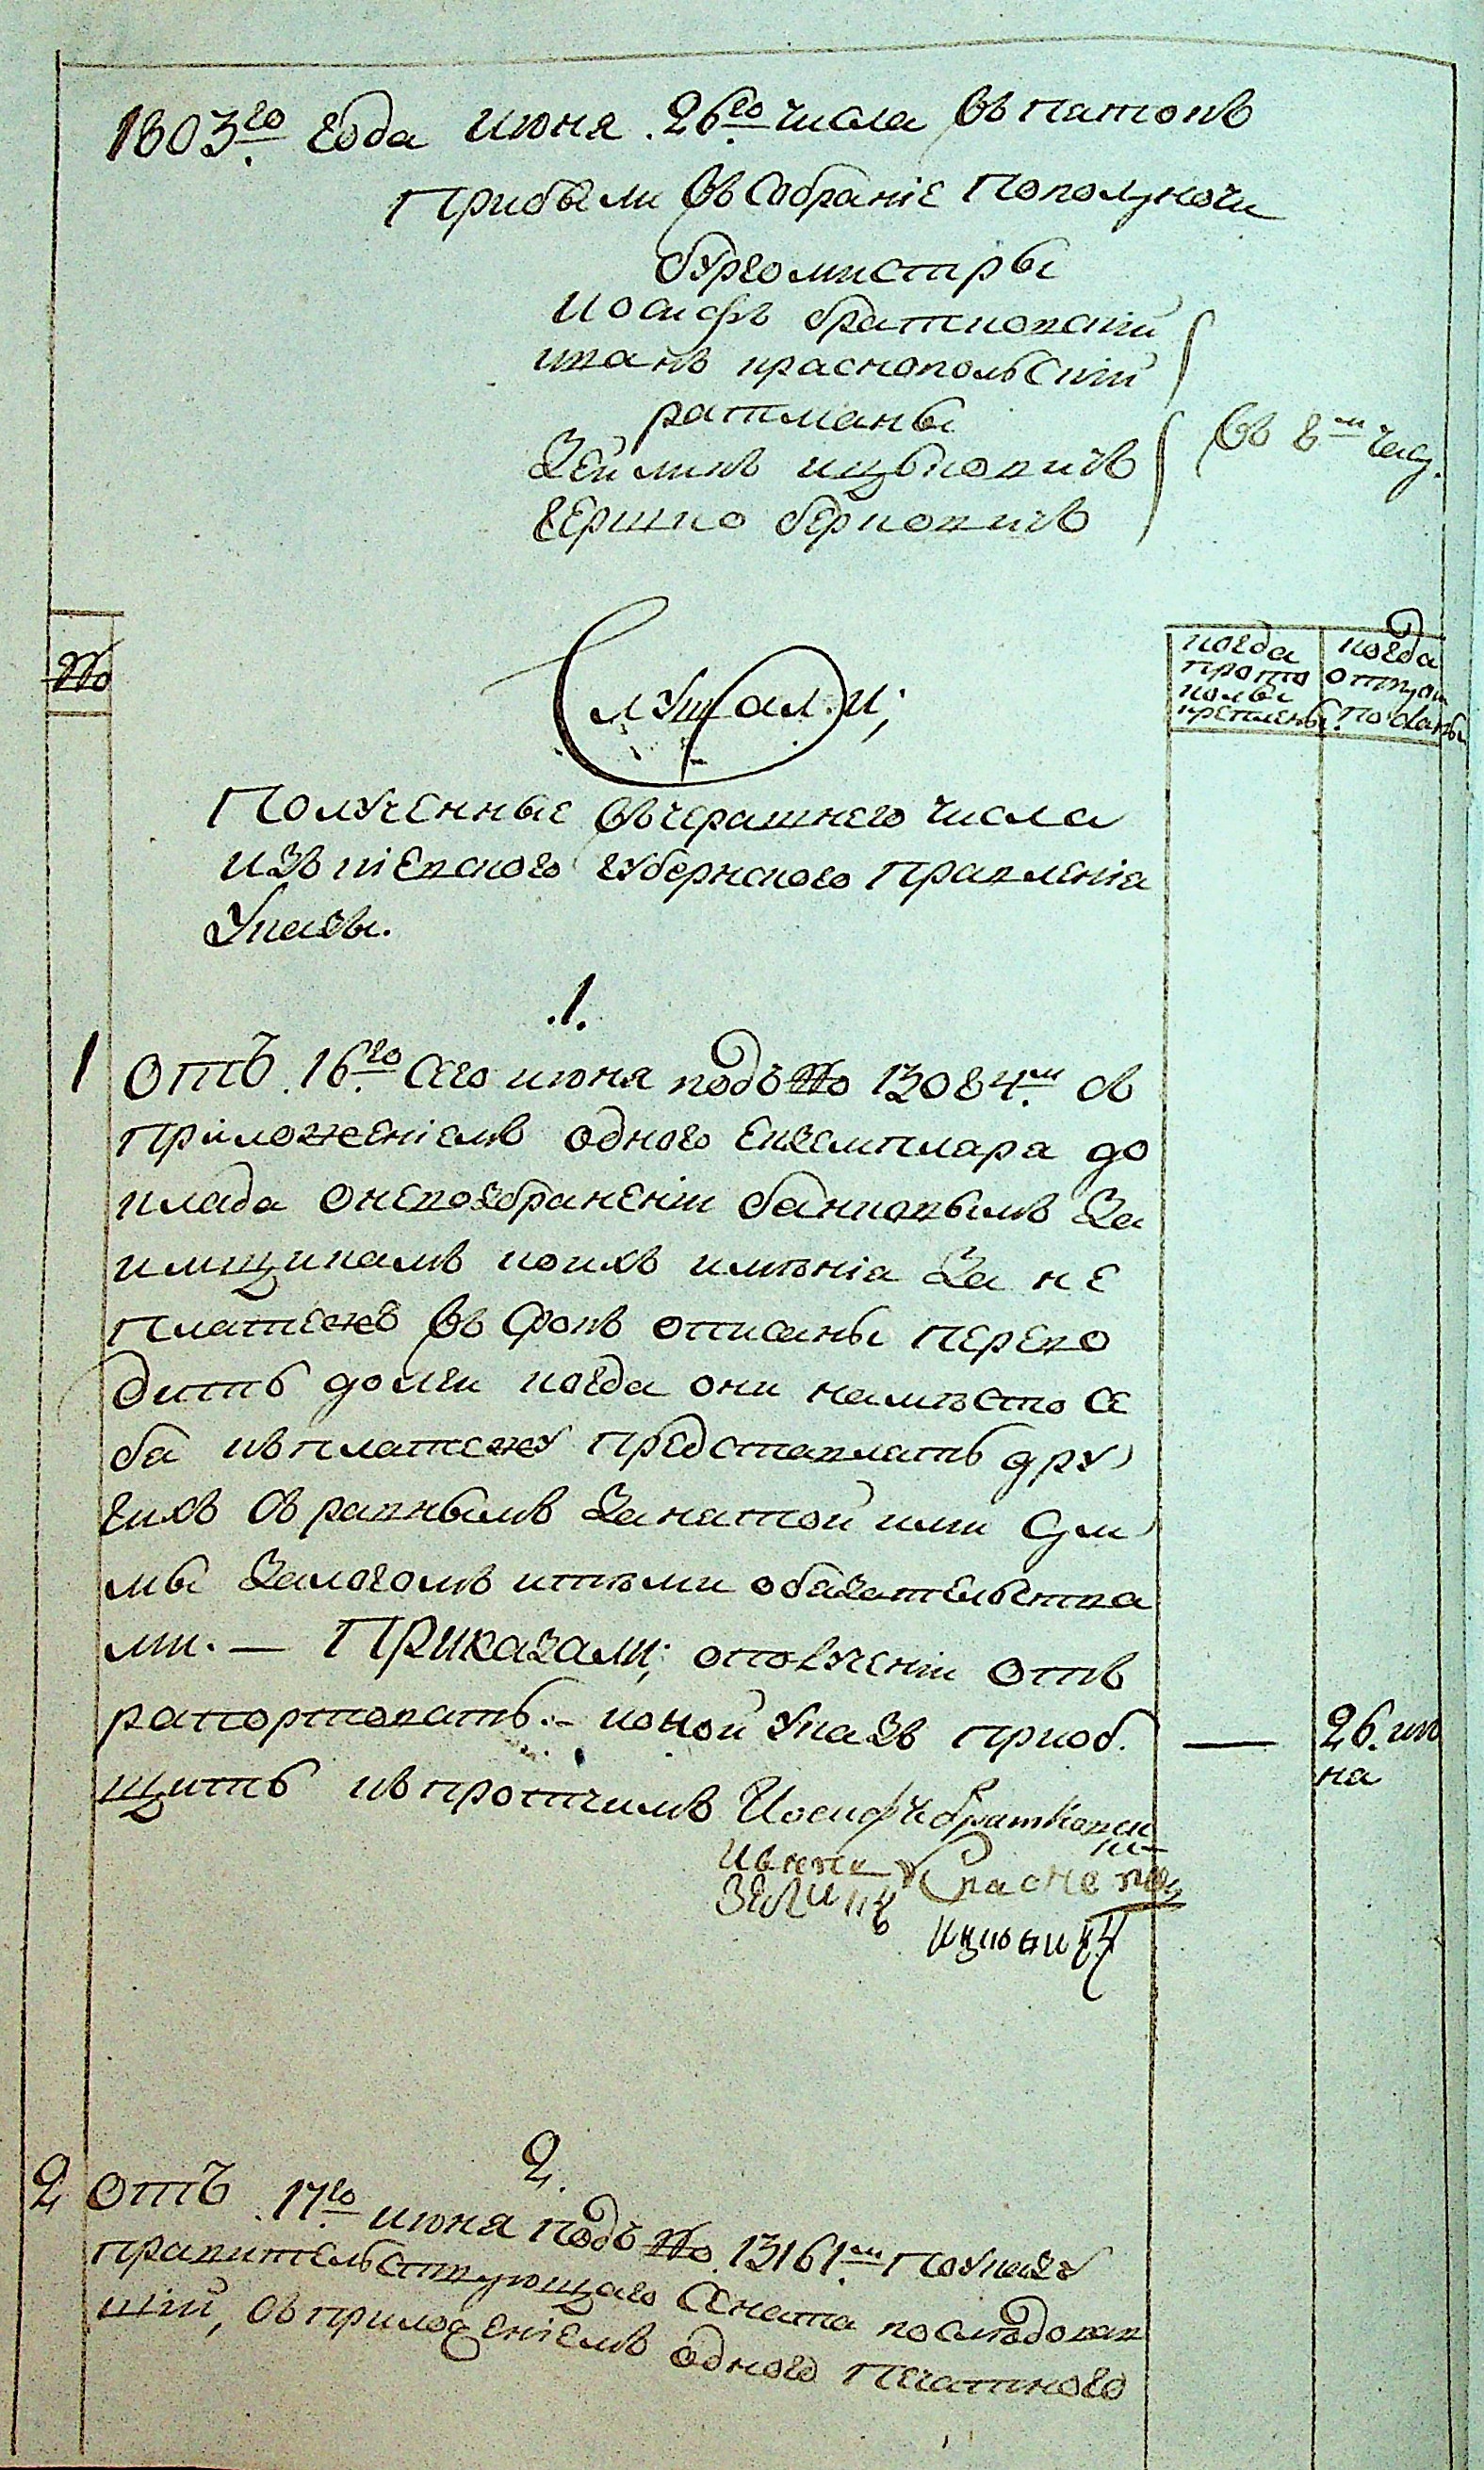 1803го года июня 26го числа въ пятокъ
Прибыли въ собраніе пополуночи
бургомистры
Иосифъ братковскій
иванъ краснопольскій
ратманы
Зейликъ ицьковичъ
гершко берковичъ
въ 8м часу.
№
Слушали;
когда прото
колы
креплены.
когда
отпуски
поданы
Полученные вчерашнего числа
изъ кіевского губернского правленія
Указы.
.1.
1 отъ 16го сего июня подъ № 13084м съ
приложеніемъ одного екземпляра до
клада о невозбраненіи банковымъ за
имщикамъ коихъ имѣнія за не
платежъ въ срокъ описаны перево
дить долги когда они намѣсто се
бя къ платежу представлять дру
гихъ съ равнымъ занятой ими сум
мы залогомъ и тѣми обязательства
ми. — Приказали; о получении отъ
рапортовать. — коной указъ приоб.
щить къ протчимъ Иосифъ братковски
й
Иванъ Краснопол
Зелик
ицькович
— 26. ию
ня
2.
2 отъ 17го июня подъ № 13161м по указу
правительствующаго сената последовав
шій, съ приложеніемъ одного печатного